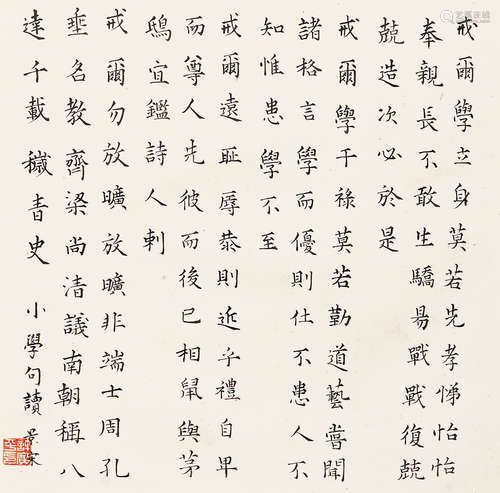 戒爾學立身莫若先孝悌怡怡
奉親長不敢生驕易戰戰復兢
兢造次必於是
戒爾學干祿莫若勤道藝嘗聞
諸格言學而優則仕不患人不
知惟患學不至
戒爾遠耻辱恭則近乎禮自卑
而尊人先彼而後己相鼠與茅
鴟宜鑑詩人刺
戒爾勿放曠放曠非端士周孔
垂名教齊梁尚清議南朝稱八
達千載穢青史 小學句讀 景宋